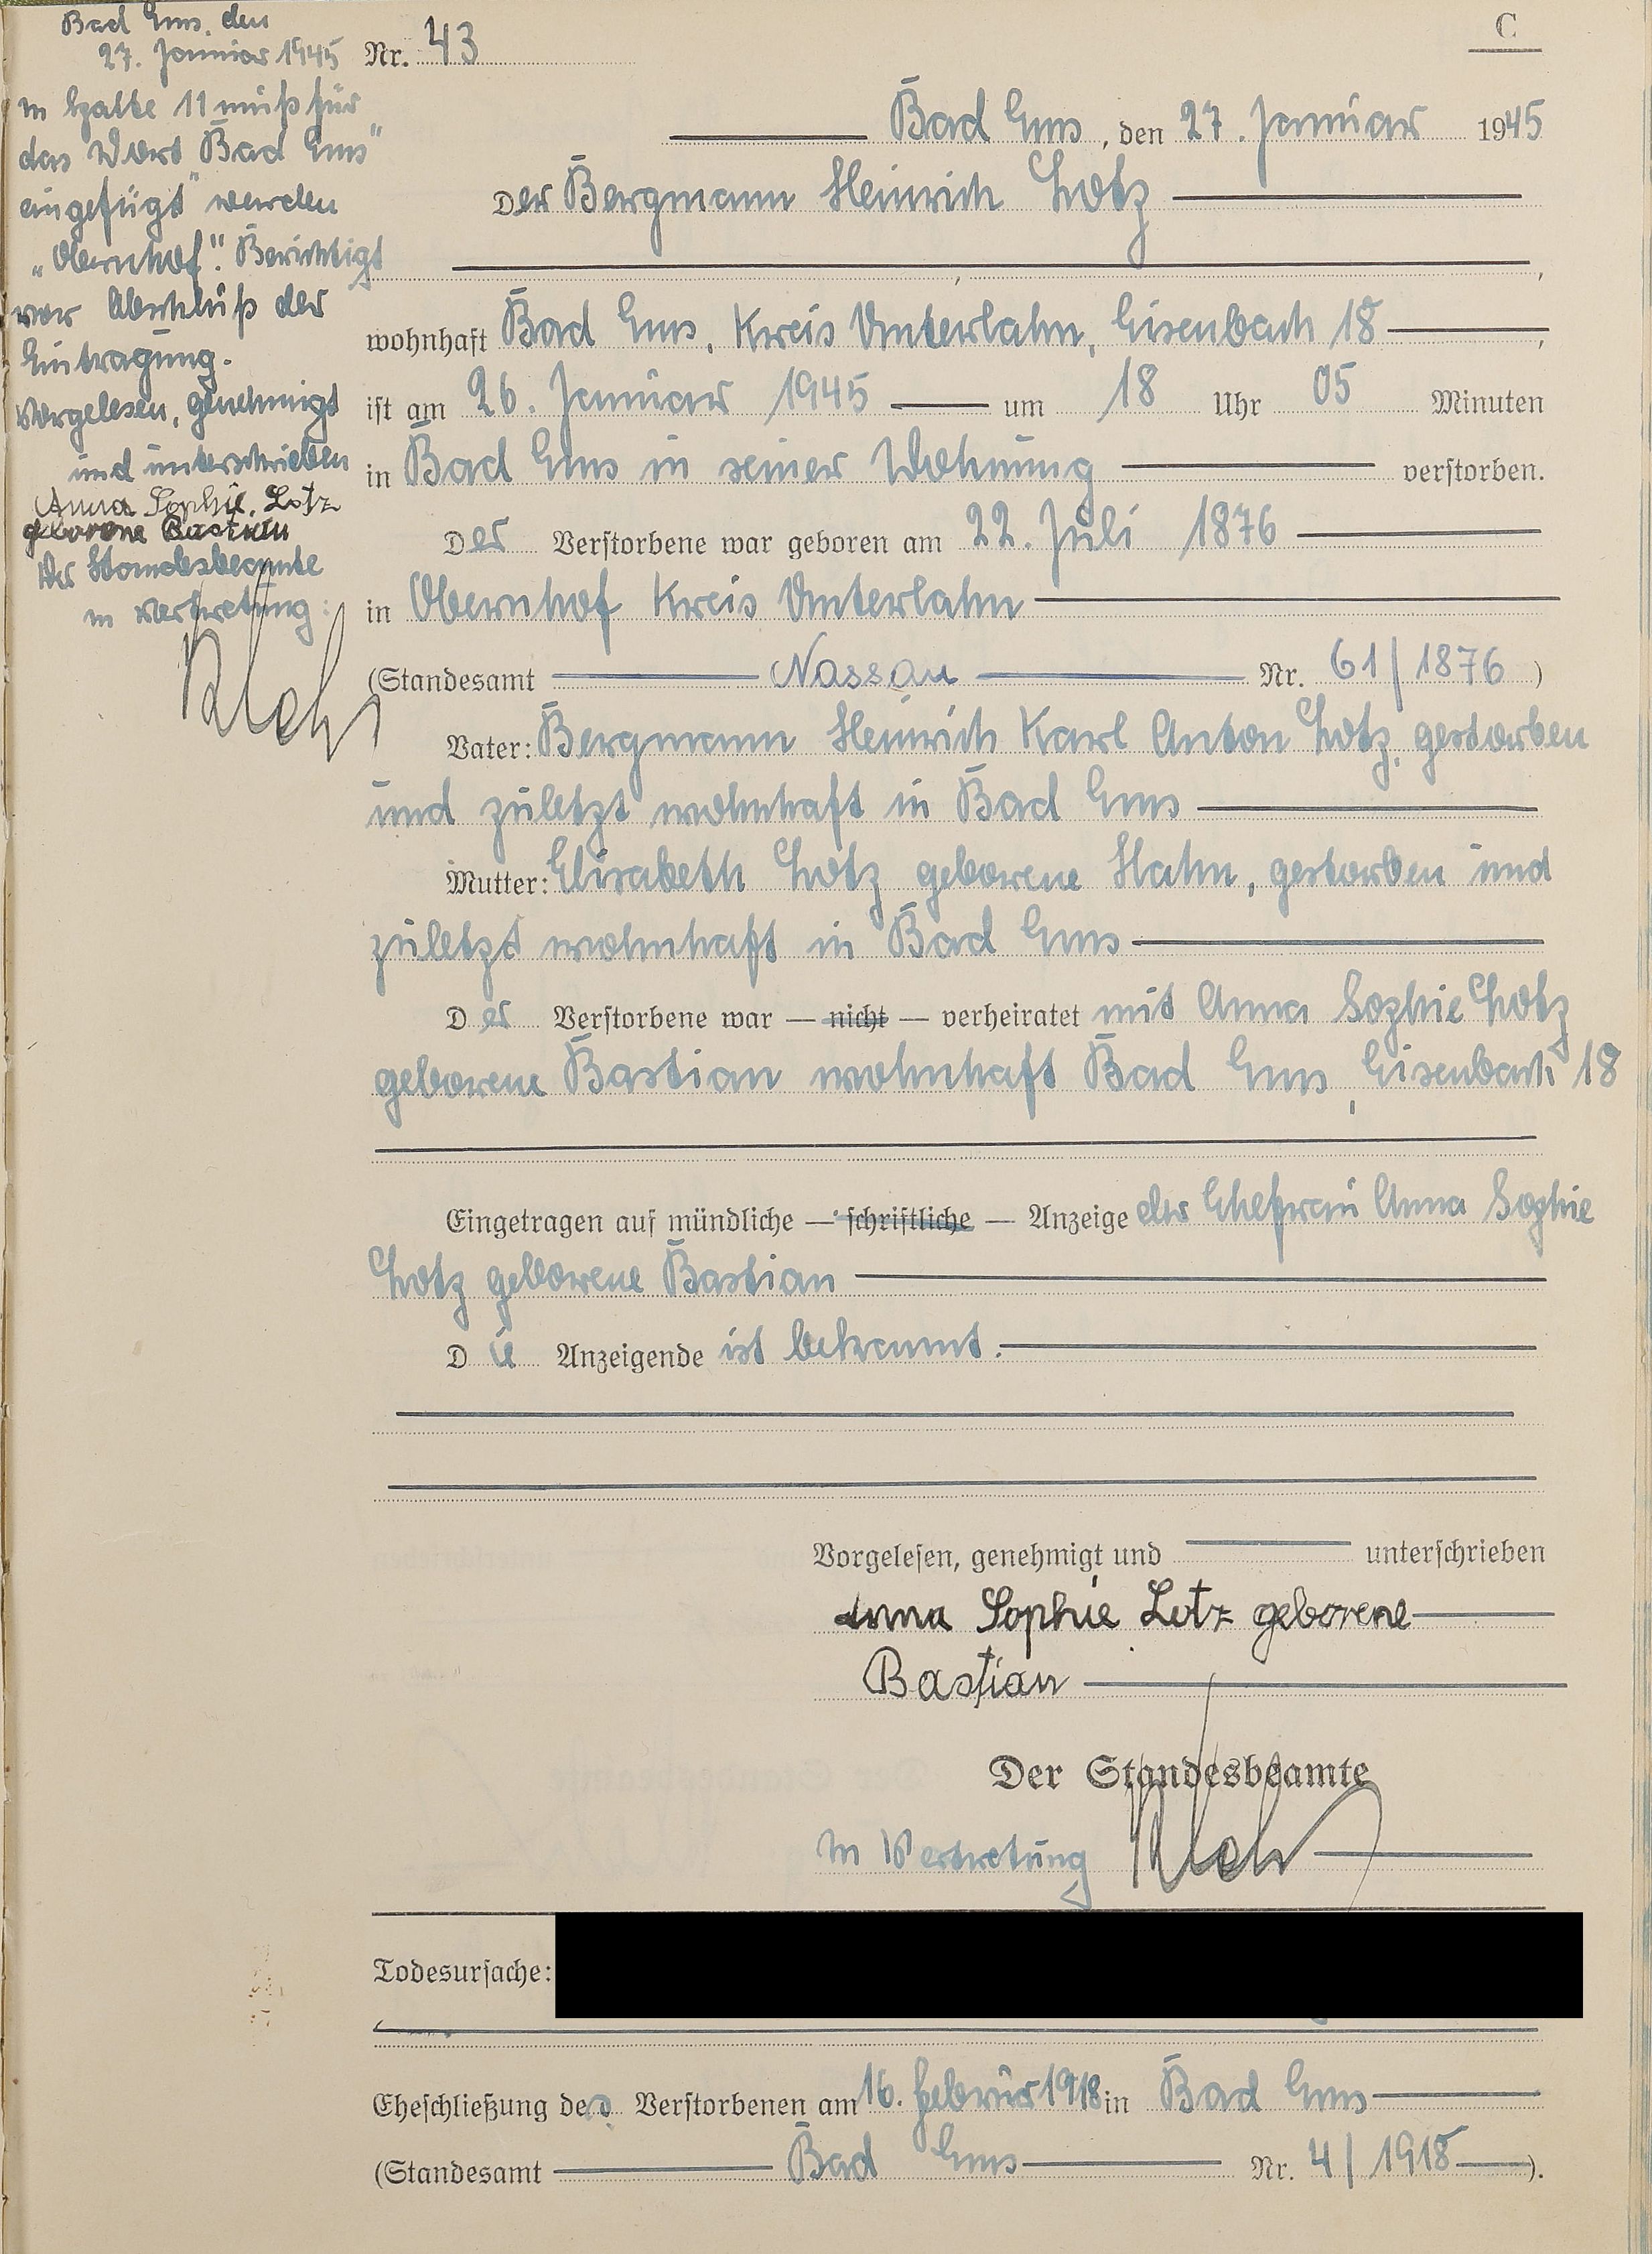 Bad Ems, den
27. Januar 1945
in Spalte 11 muß für
das Wort „Bad Ems"
eingefügt werden
„Obernhof". Berichtigt
vor Abschluß der
Eintragung.
Vorgelesen, genehmigt
und unterschrieben
Anna Sophie Lotz
geborene Bastian
Der Standesbeamte
in Vertretung:
C
Nr. 43
Bad Ems, den 27. Januar 1945
Der Bergmann Heinrich Lotz
wohnhaft Bad Ems, Kreis Unterlahn, Eisenbach 18
ist am 26. Januar 1945 um 18 Uhr 05 Minuten
in Bad Ems in seiner Wohnung verstorben.
Der Verstorbene war geboren am 22. Juli 1876
in Obernhof Kreis Unterlahn
(Standesamt Nassau Nr. 61/1876)
Vater: Bergmann Heinrich Karl Anton Lotz, gestorben
und zuletzt wohnhaft in Bad Ems
Mutter: Elisabeth Lotz geborene Hahn, gestorben und
zuletzt wohnhaft in Bad Ems
Der Verstorbene war — nicht — verheiratet mit Anna Sophie Lotz
geborene Bastian wohnhaft Bad Ems, Eisenbach 18
Eingetragen auf mündliche — schriftliche — Anzeige der Ehefrau Anna Sophie
Lotz geborene Bastian
Die Anzeigende ist bekannt.
Vorgelesen, genehmigt und unterschrieben
Anna Sophie Lotz geborene
Bastian
Der Standesbeamte
In Vertretung
Todesursache:
Eheschließung des Verstorbenen am 16. Februar 1918 in Bad Ems
(Standesamt Bad Ems Nr. 4/1918).